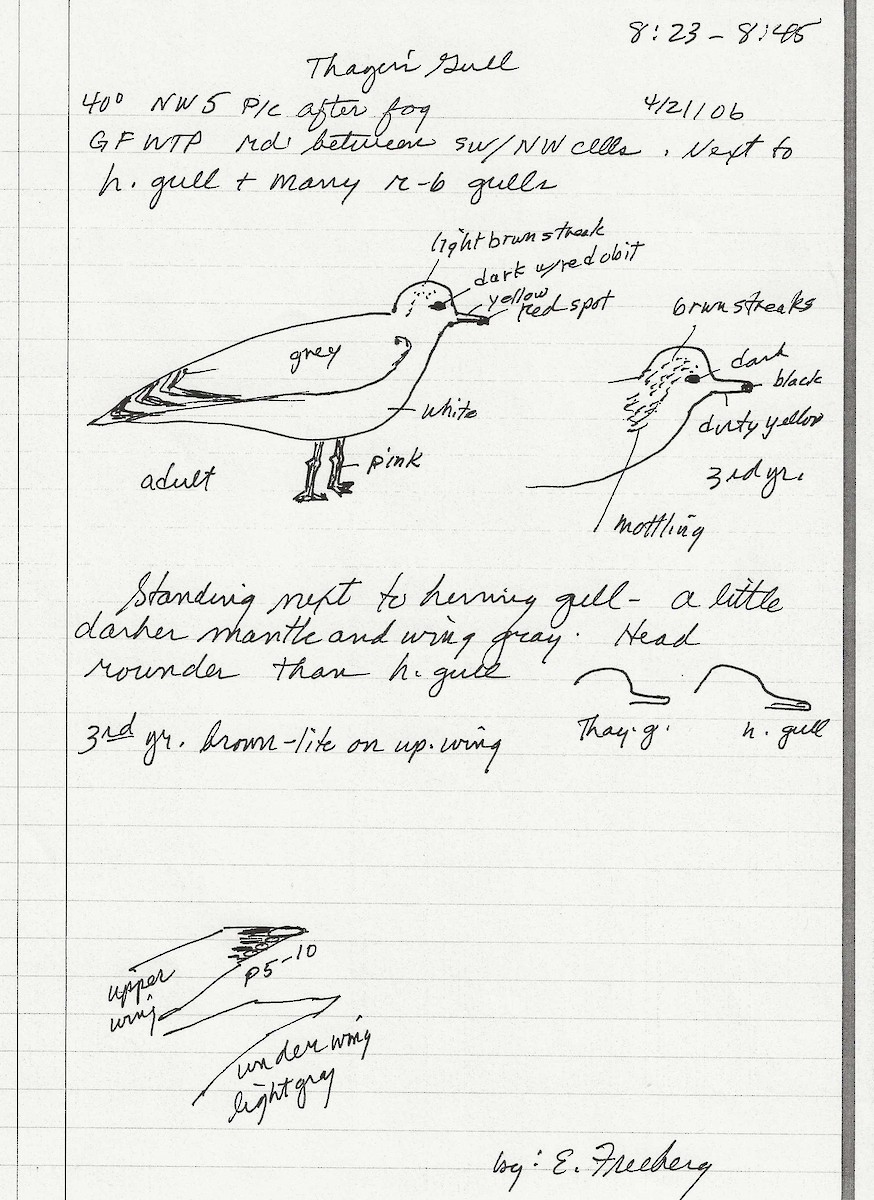 8:23 - 8:45
Thayer's Gull
40° NW5 P/c after fog 4/21/06
GFWTP rd between SW/NW cells. Next to
h. gull + many r-b gulls
light brwn streak
dark w/red obit
yellow
red spot
grey
white
pink
adult
brwn streaks
dark
black
dirty yellow
3rd yr.
mottling
Standing next to herring gull - a little
darker mantle and wing gray. Head
rounder than h. gull
Thay. g. h. gull
3rd yr. brown-lite on up. wing
P5-10
upper
wing
under wing
light gray
by: E. Freeberg